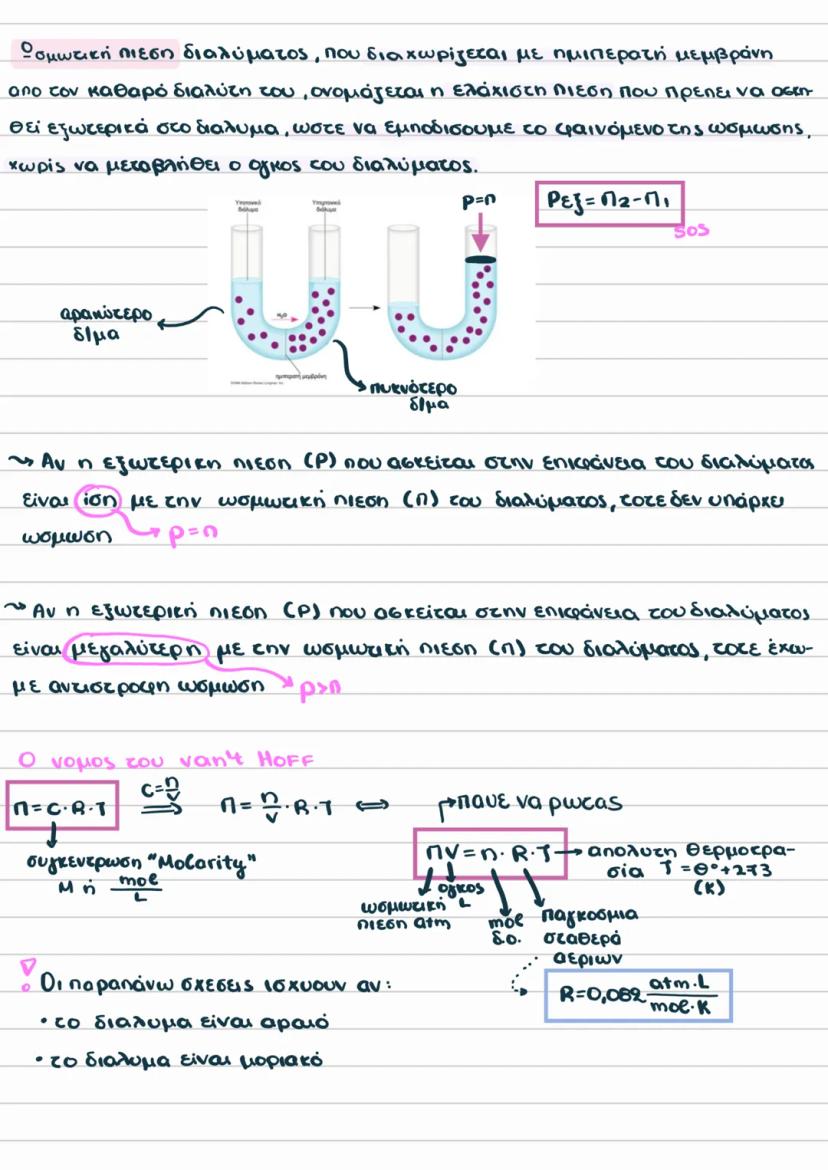 Ωσμωτική πιεση διαλύματος, που διαχωρίζεται με ημιπερατή μεμβράνη
απο τον καθαρό διαλύτη του, ονομάζεται η ελάχιστη πιεση που πρεπει να ασκη-
θεί εξωτερικά στο διαλυμα, ωστε να εμποδισουμε το φαινόμενο της ωσμωσης,
χωρίς να μεταβληθει ο ογκος του διαλύματος.
Υποτονικό διάλυμα
Υπερτονικό διάλυμα
P=Π
Pεξ=Π2-Π1
SOS
αραιότερο
δ/μα
H₂O
ημιπερατή μεμβράνη
πυκνότερο
δ/μα
⇝ Αν η εξωτερικη πιεση (P) που ασκείται στην επιφάνεια του διαλύματος
είναι ίση με την ωσμωτική πιεση (Π) του διαλύματος, τοτε δεν υπάρχει
ωσμωση → P=Π
⇝ Αν η εξωτερική πιεση (P) που ασκείται στην επιφάνεια του διαλύματος
είναι μεγαλύτερη με την ωσμωτική πιεση (Π) του διαλύματος, τοτε έχου-
με αντιστροφη ωσμωση → P>Π
Ο νομος του van't Hoff
Π=C·R·T
C=n/V
⇒ Π= n/V ·R·T ⇔
παυε να ρωτας
ΠV=n·R·T
απολυτη θερμοκρα-
σία T=θ°+273
(K)
συγκεντρωση "Molarity"
M ή mol/L
ωσμωτική
πιεση atm
ογκος
L
mol
δ.ο.
παγκοσμια
σταθερά
αεριων
R=0,082 atm·L/mol·K
Οι παραπάνω σχεσεις ισχυουν αν:
• το διαλυμα είναι αραιό
• το διαλυμα είναι μοριακό